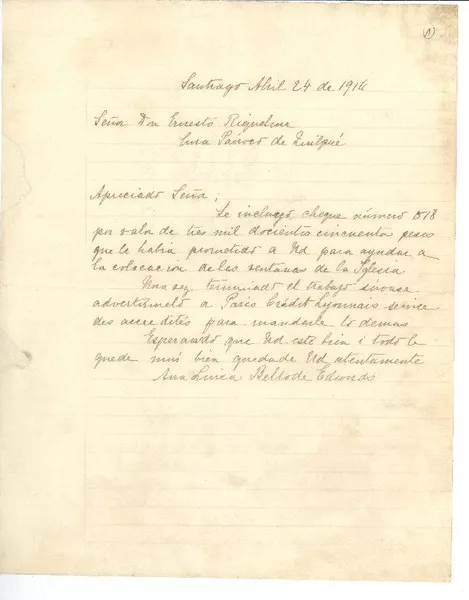 1
Santiago Abril 24 de 1914
Señor Don Ernesto Riquelme
Cura Párroco de Quilpué
Apreciado Señor;
Le incluyo cheque número 1518
por valor de tres mil docientos cincuenta pesos
que le habia prometido a Ud para ayudar a
la colocacion de las ventanas de la Iglesia
Una vez terminado el trabajo sirvase
advertirmelo a Paris Crédit Lyonnais service
des accredités para mandarle lo demas
Esperando que Ud este bien i todo le
quede mui bien queda de Ud atentamente
Ana Luisa Bello de Edwards